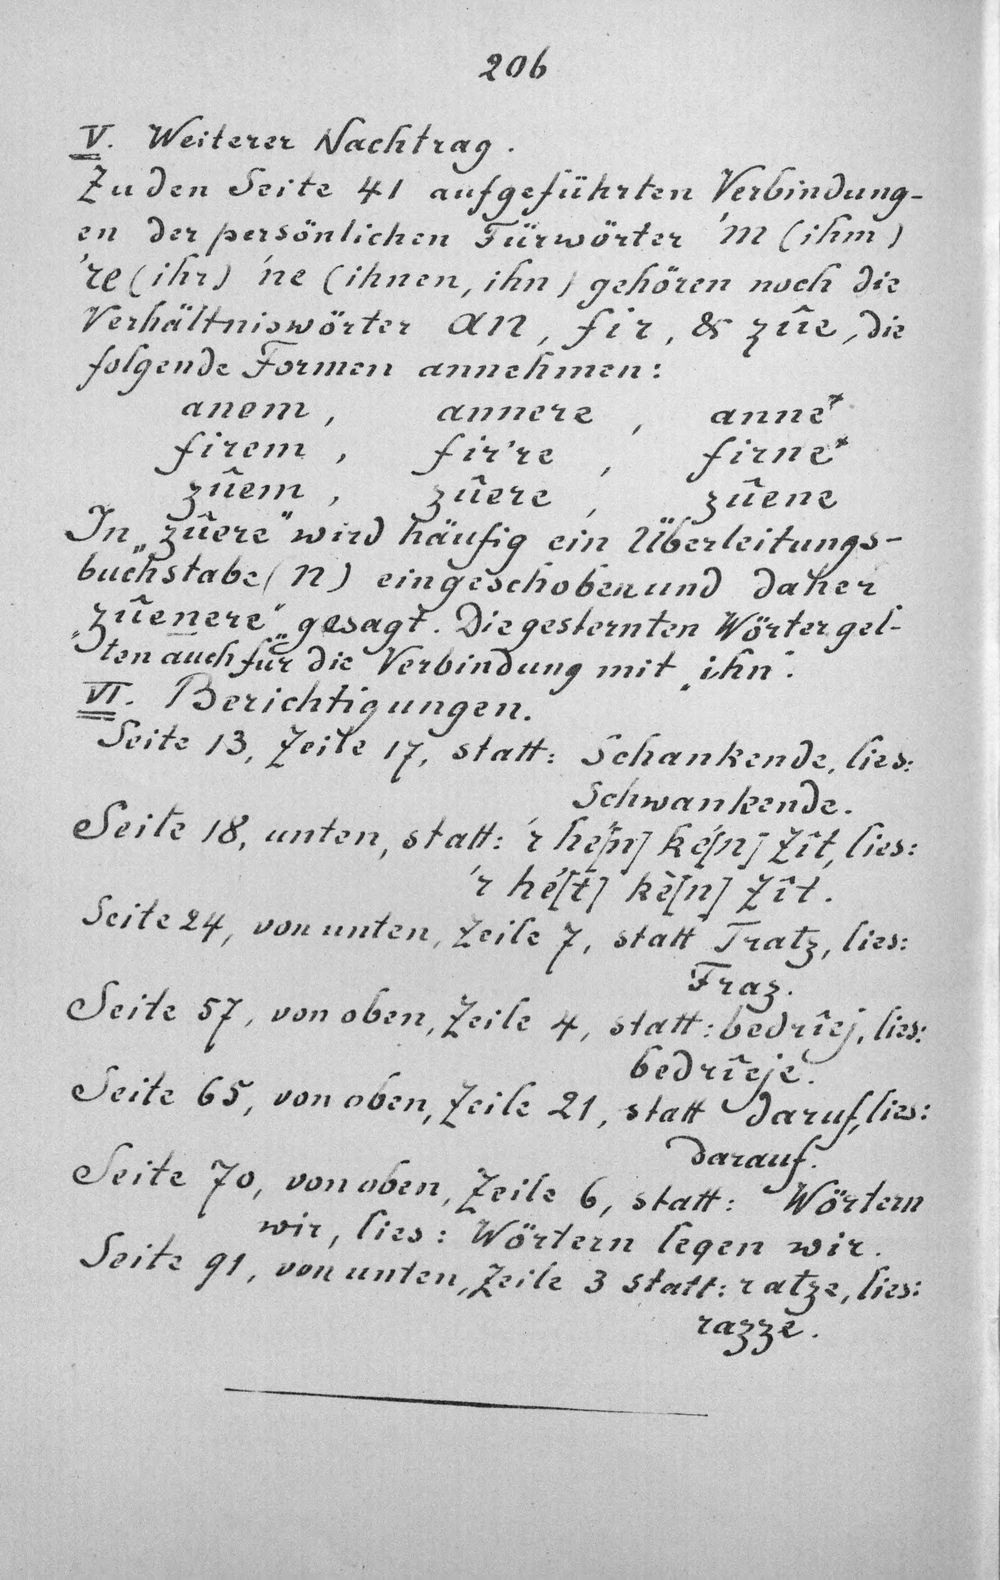 206
V. Weiterer Nachtrag.
Zu den Seite 41 aufgeführten Verbindung-
en der persönlichen Fürwörter 'm (ihm)
're (ihr) 'ne (ihnen, ihn) gehören noch die
Verhältniswörter an, fir, & zûe, die
folgende Formen annehmen:
anem, annere, anne*
firem, fir're, firne*
zûem, zûere, zûene
In „zûere" wird häufig ein Überleitungs-
buchstabe (n) eingeschoben und daher
„zûenere" gesagt. Die gesternten Wörter gel-
ten auch für die Verbindung mit „ihn".
VI. Berichtigungen.
Seite 13, Zeile 17, statt: Schankende, lies:
Schwankende.
Seite 18, unten, statt: 'r hé[n] ké[n] Zît, lies:
'r hé[t] kè[n] Zît.
Seite 24, von unten, Zeile 7, statt Tratz, lies:
Fraz.
Seite 57, von oben, Zeile 4, statt: bedrîej, lies:
bedrîeje.
Seite 65, von oben, Zeile 21, statt daruf, lies:
darauf.
Seite 70, von oben, Zeile 6, statt: Wörtern
wir, lies: Wörtern legen wir.
Seite 91, von unten, Zeile 3 statt: ratze, lies:
razze.